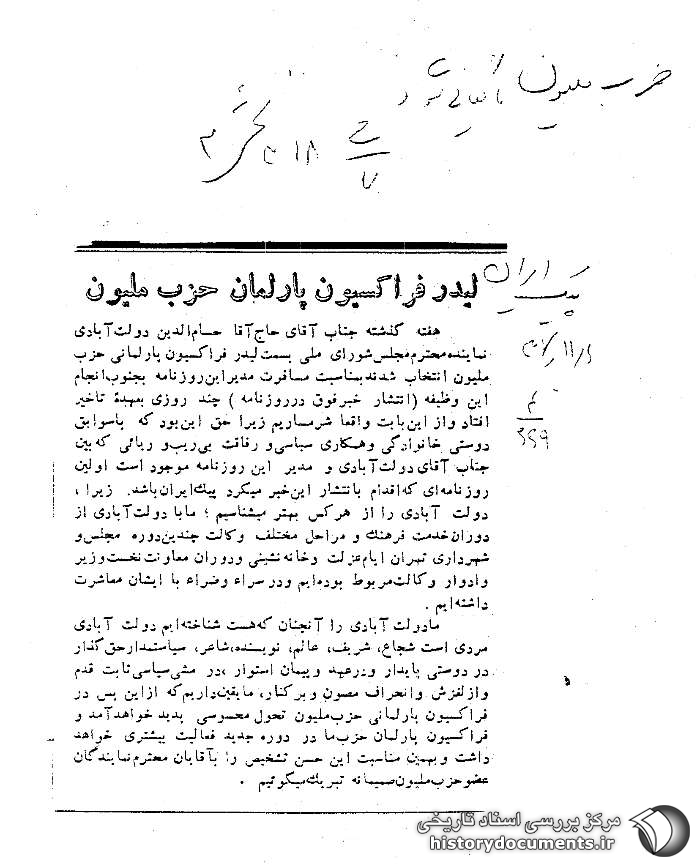 حزب ملیون
لیدر فراکسیون پارلمان حزب ملیون
پیک ایران
هفته گذشته جناب آقای حاج‌آقا حسام‌الدین دولت‌آبادی
نماینده محترم مجلس‌شورای ملی بسمت لیدر فراکسیون پارلمانی حزب
ملیون انتخاب شدند بمناسبت مسافرت مدیر این روزنامه بجنوب انجام
این وظیفه (انتشار خبر فوق در روزنامه) چند روزی بعهدهٔ تاخیر
افتاد و از این‌بابت واقعا شرمساریم زیرا حق این‌بود که باسوابق
دوستی خانوادگی و همکاری سیاسی و رفاقت بی‌ریب و ریائی که بین
جناب آقای دولت‌آبادی و مدیر این روزنامه موجود است اولین
روزنامه‌ای که اقدام بانتشار این‌خبر میکرد پیک ایران باشد. زیرا ،
دولت آبادی را از هر کس بهتر میشناسیم ؛ ما با دولت‌آبادی از
دوران خدمت فرهنگ و مراحل مختلف وکالت چندین‌دوره مجلس و
شهرداری تهران ایام عزلت و خانه نشینی و دوران معاونت نخست‌وزیر
و ادوار وکالت مربوط بوده‌ایم و در سراء و ضراء با ایشان معاشرت
داشته‌ایم .
ما دولت آبادی را آنچنان که هست شناخته‌ایم دولت آبادی
مردی است شجاع، شریف، عالم، نویسنده، شاعر، سیاستمدار حق‌گذار
در دوستی پایدار و در عهد و پیمان استوار ، در مشی سیاسی ثابت قدم
و از لغزش و انحراف مصون و برکنار، ما یقین داریم که از این پس در
فراکسیون پارلمانی حزب ملیون تحول محسوسی پدید خواهد آمد و
فراکسیون پارلمان حزب ما در دوره جدید فعالیت بیشتری خواهد
داشت و بهمین مناسبت این حسن تشخیص را بآقایان محترم نمایندگان
عضو حزب ملیون صمیمانه تبریک میگوئیم .
مرکز بررسی اسناد تاریخی
historydocuments.ir